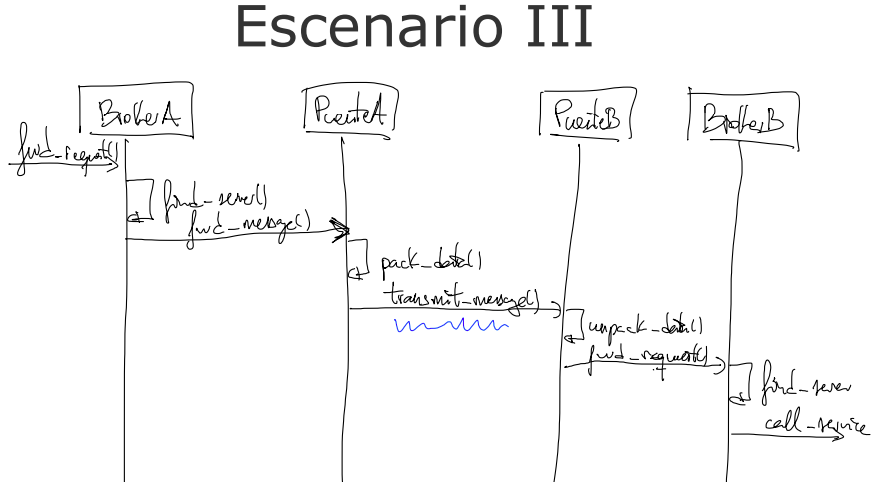 Escenario III
BrokerA
PuenteA
PuenteB
BrokerB
fwd_request()
find_server()
fwd_message()
pack_data()
transmit_message()
unpack_data()
fwd_request()
find_server
call_service